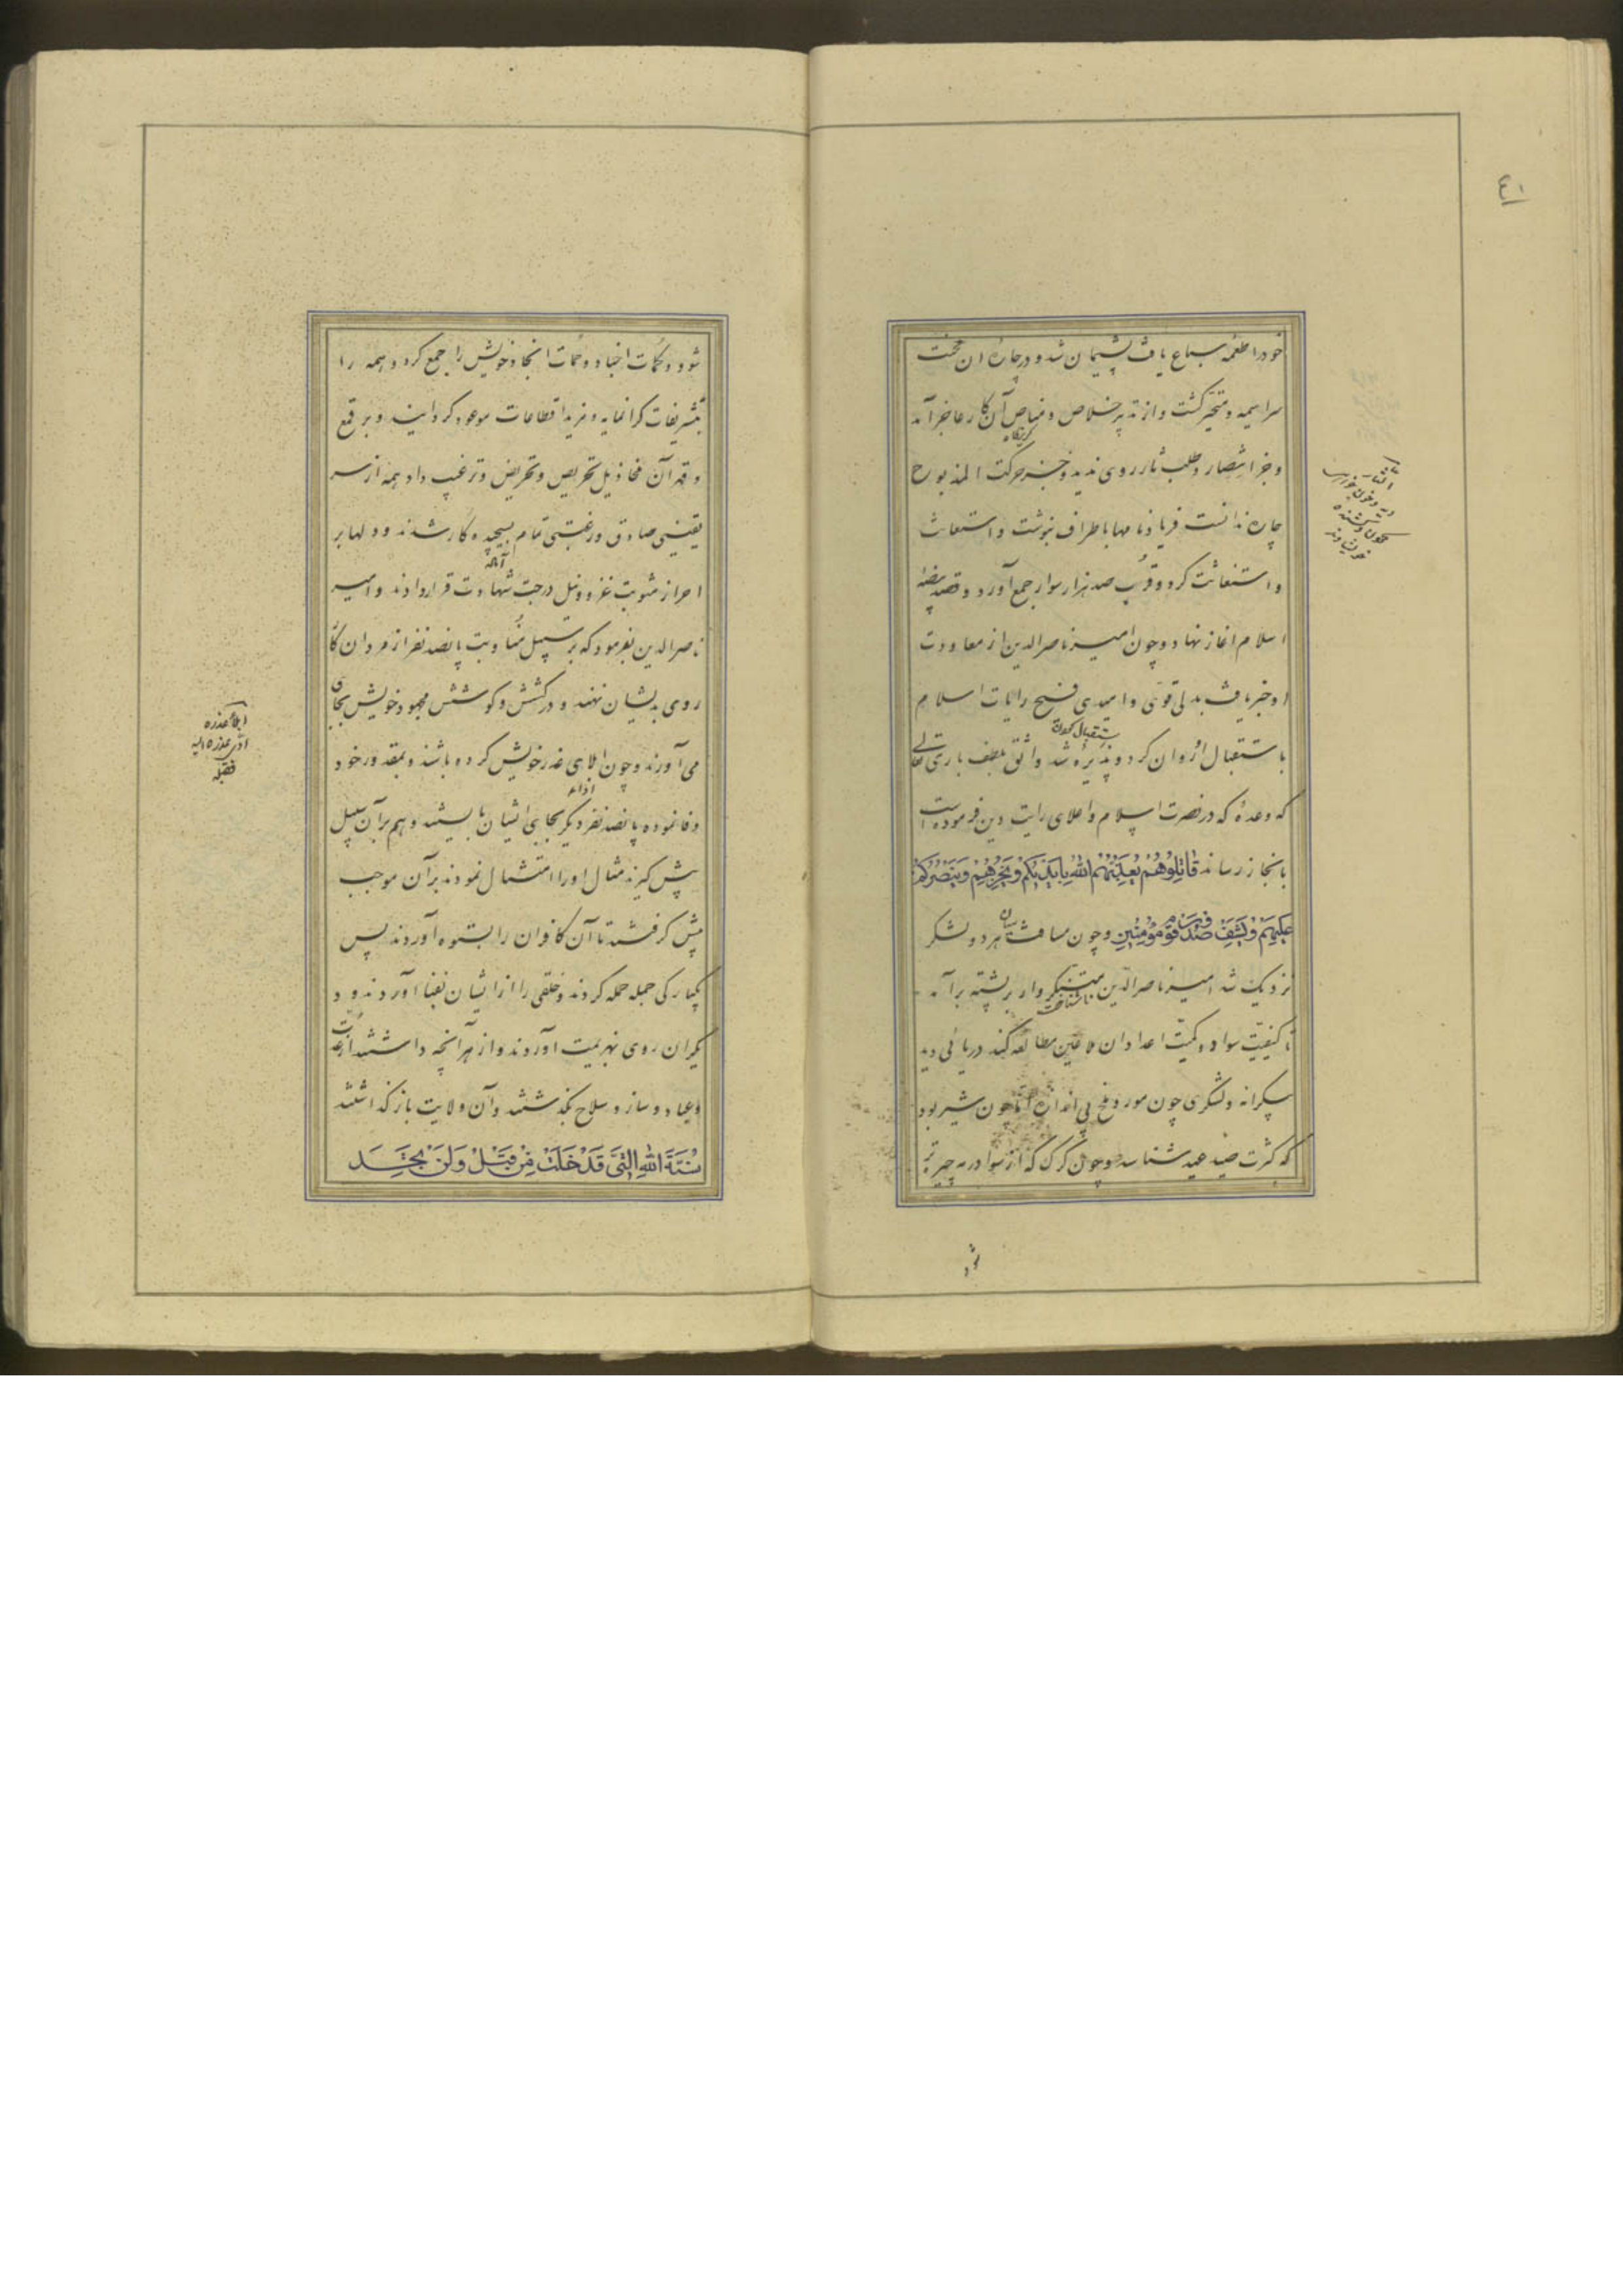 ٤١
خود را طعمه سباع یافت پشیمان شد و در چاره ان محنت
سراسیمه و متحیر کشت و از تدبیر خلاص و مناص آن کار عاجز آمد
کریزگاه
و جز انتصار و طلب ثار روی ندید و جز حرکت المذبوح
چاره ندانست فریاذ نامها باطراف بنوشت و استعانت
و استغاثت کرد و قرب صد هزار سوار جمع آورد و قصد بیضه
اسلام اغاز نهاد و چون امیر ناصرالدین از معاودت
او خبر یافت بدلی قوی و امیدی فسیح رایات اسلام
استقبال کردن
باستقبال او روان کرد و پذیره شد واثق بلطف باری تعالی
که وعدهٔ که در نصرت اسلام و اعلای رایت دین فرموده است
بانجاز رساند قَاتِلُوهُمْ يُعَذِّبْهُمُ اللهُ بِاَيْدِيكُمْ وَيُخْزِهِمْ وَيَنْصُرْكُمْ
عَلَيْهِمْ وَيَشْفِ صُدُورَ قَوْمٍ مُؤْمِنِينَ و چون مسافت میان هر دو لشکر
نزدیک شد امیر ناصرالدین متنکر وار بر پشته برآمد
ناشناخت
تا کیفیت سواد و کمیت اعداد ان ملاعین مطالعه کند دریائی دید
بیکرانه و لشکری چون مور و ملخ بی اندازه اما چون شیر بود
که کثرت صید عید شناسد و چون کرک که از سواد رمه چیره تر
الثار
خون
کشنده
شود
شود و کمات اجناد و حمات انجاد خویش را جمع کرد و همه را
بتشریفات کرانمایه و مزید اقطاعات موعود کردانید و بر قمع
و قهر آن مخاذیل تحریص و تحریض و ترغیب داد همه از سر
یقینی صادق و رغبتی تمام بسیچیده کار شدند و دلها بر
آماده
احراز مثوبت غزو و نیل درجت شهادت قرار دادند و امیر
ناصرالدین بفرمود که بر سبیل مناوبت پانصد نفر از مردان کار
روی بدیشان نهند و در کشش و کوشش مجهود خویش بجای
می آورند و چون ابلای عذر خویش کرده باشند و بمقدور خود
اداء
وفا نموده پانصد نفر دیکر بجای ایشان بایستند و هم بر آن سبیل
پیش کیرند مثال او را امتثال نمودند بر آن موجب
پیش کرفتند تا آن کافران را بستوه آوردند پس
یکبارکی جمله حمله کردند و خلقی را از ایشان بفنا آوردند و د
یکران روی بهزیمت آوردند و از هر آنچه داشتند از عدت
و عتاد و ساز و سلاح بکذشتند و آن ولایت باز کذاشتند
سُنَّةَ اللهِ الَّتِي قَدْ خَلَتْ مِنْ قَبْلُ وَلَنْ تَجِدَ
ابلاه عذره
ادی عذره الیه
فقبله